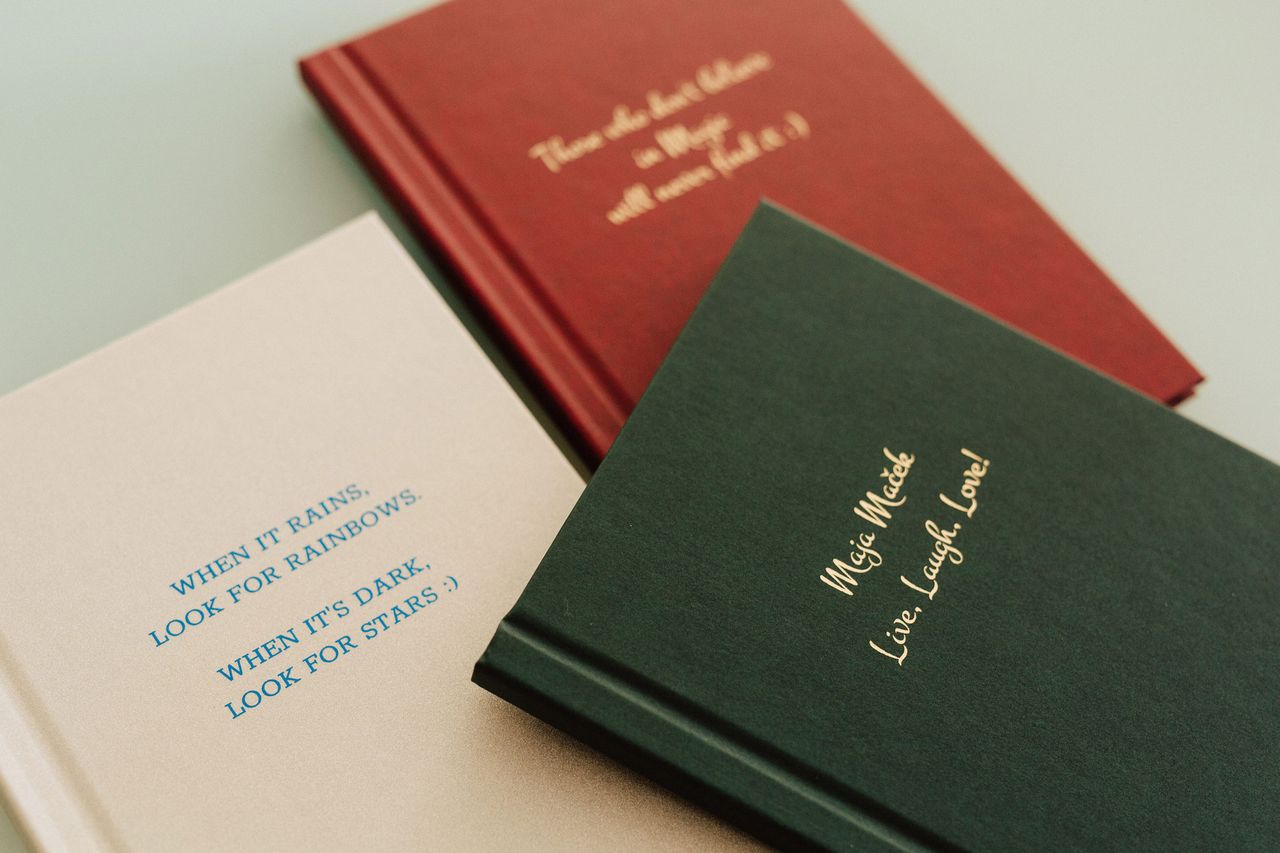 Those who don't believe
in Magic
will never find it :)
WHEN IT RAINS,
LOOK FOR RAINBOWS.
WHEN IT'S DARK,
LOOK FOR STARS :)
Maja Maček
Live, Laugh, Love!